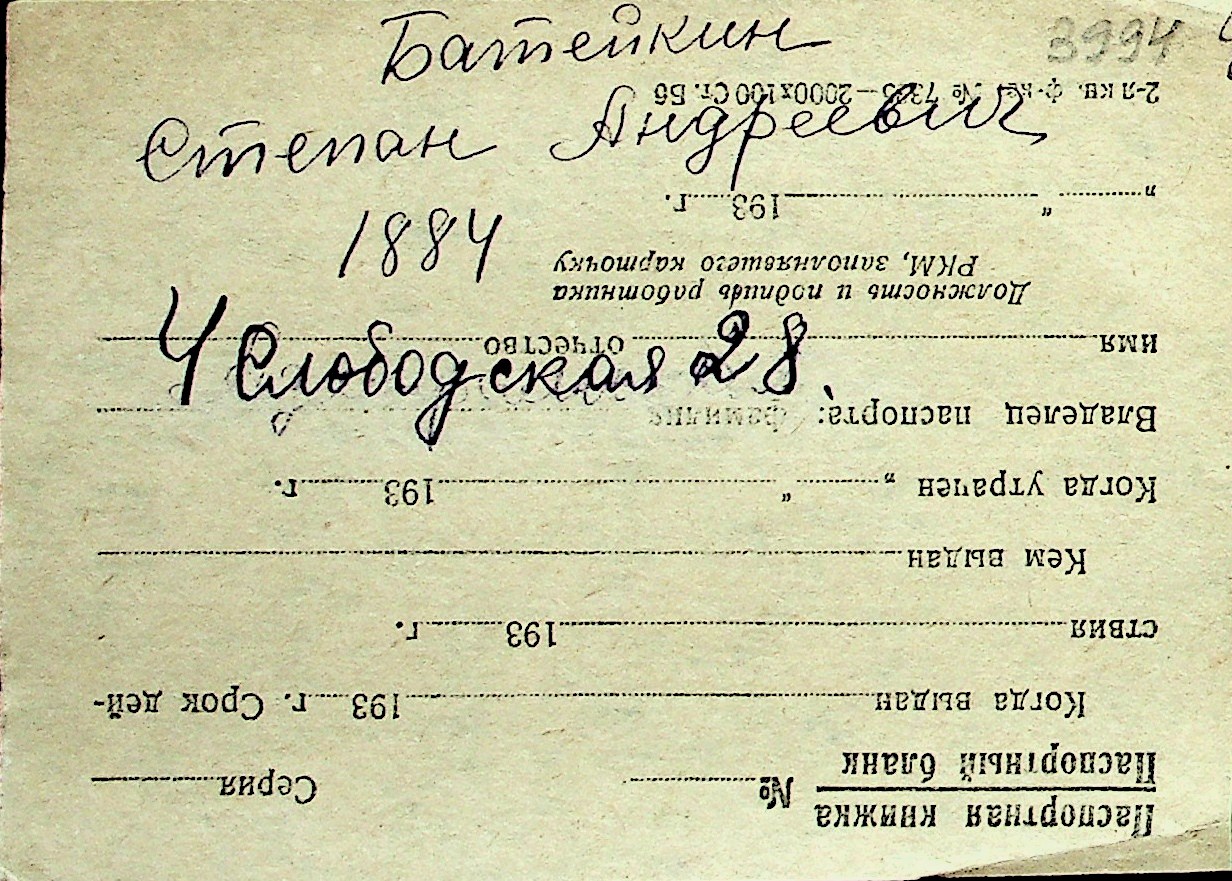 Батейкин
3994
Степан Андреевич
1884
4 Слободская 28
Паспортная книжка
Паспортный бланк
№ Серия
Когда выдан 193 г. Срок дей-
ствия 193 г.
Кем выдан
Когда утрачен „ “ 193 г.
Владелец паспорта: фамилия
имя отчество
Должность и подпись работника
РКМ, заполнявшего карточку
„ “ 193 г.
2-л кв. ф-ка. № 7363—2000х100 Ст. Б6